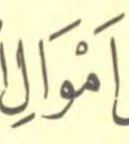 اَمْوَالِ